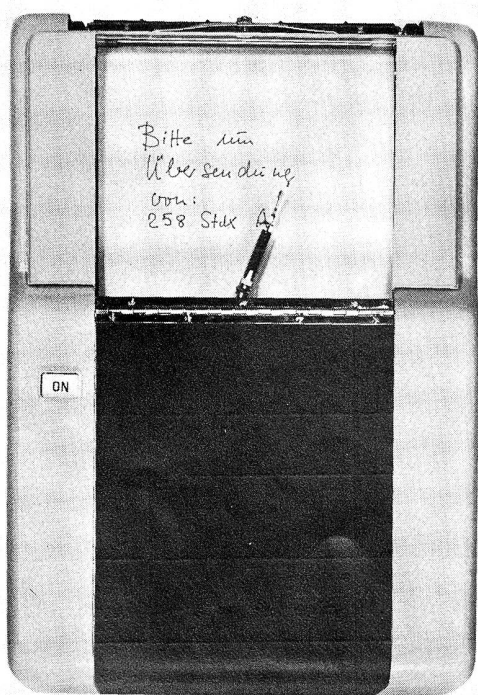 Bitte um
Übersendung
von:
258 Stck A
ON